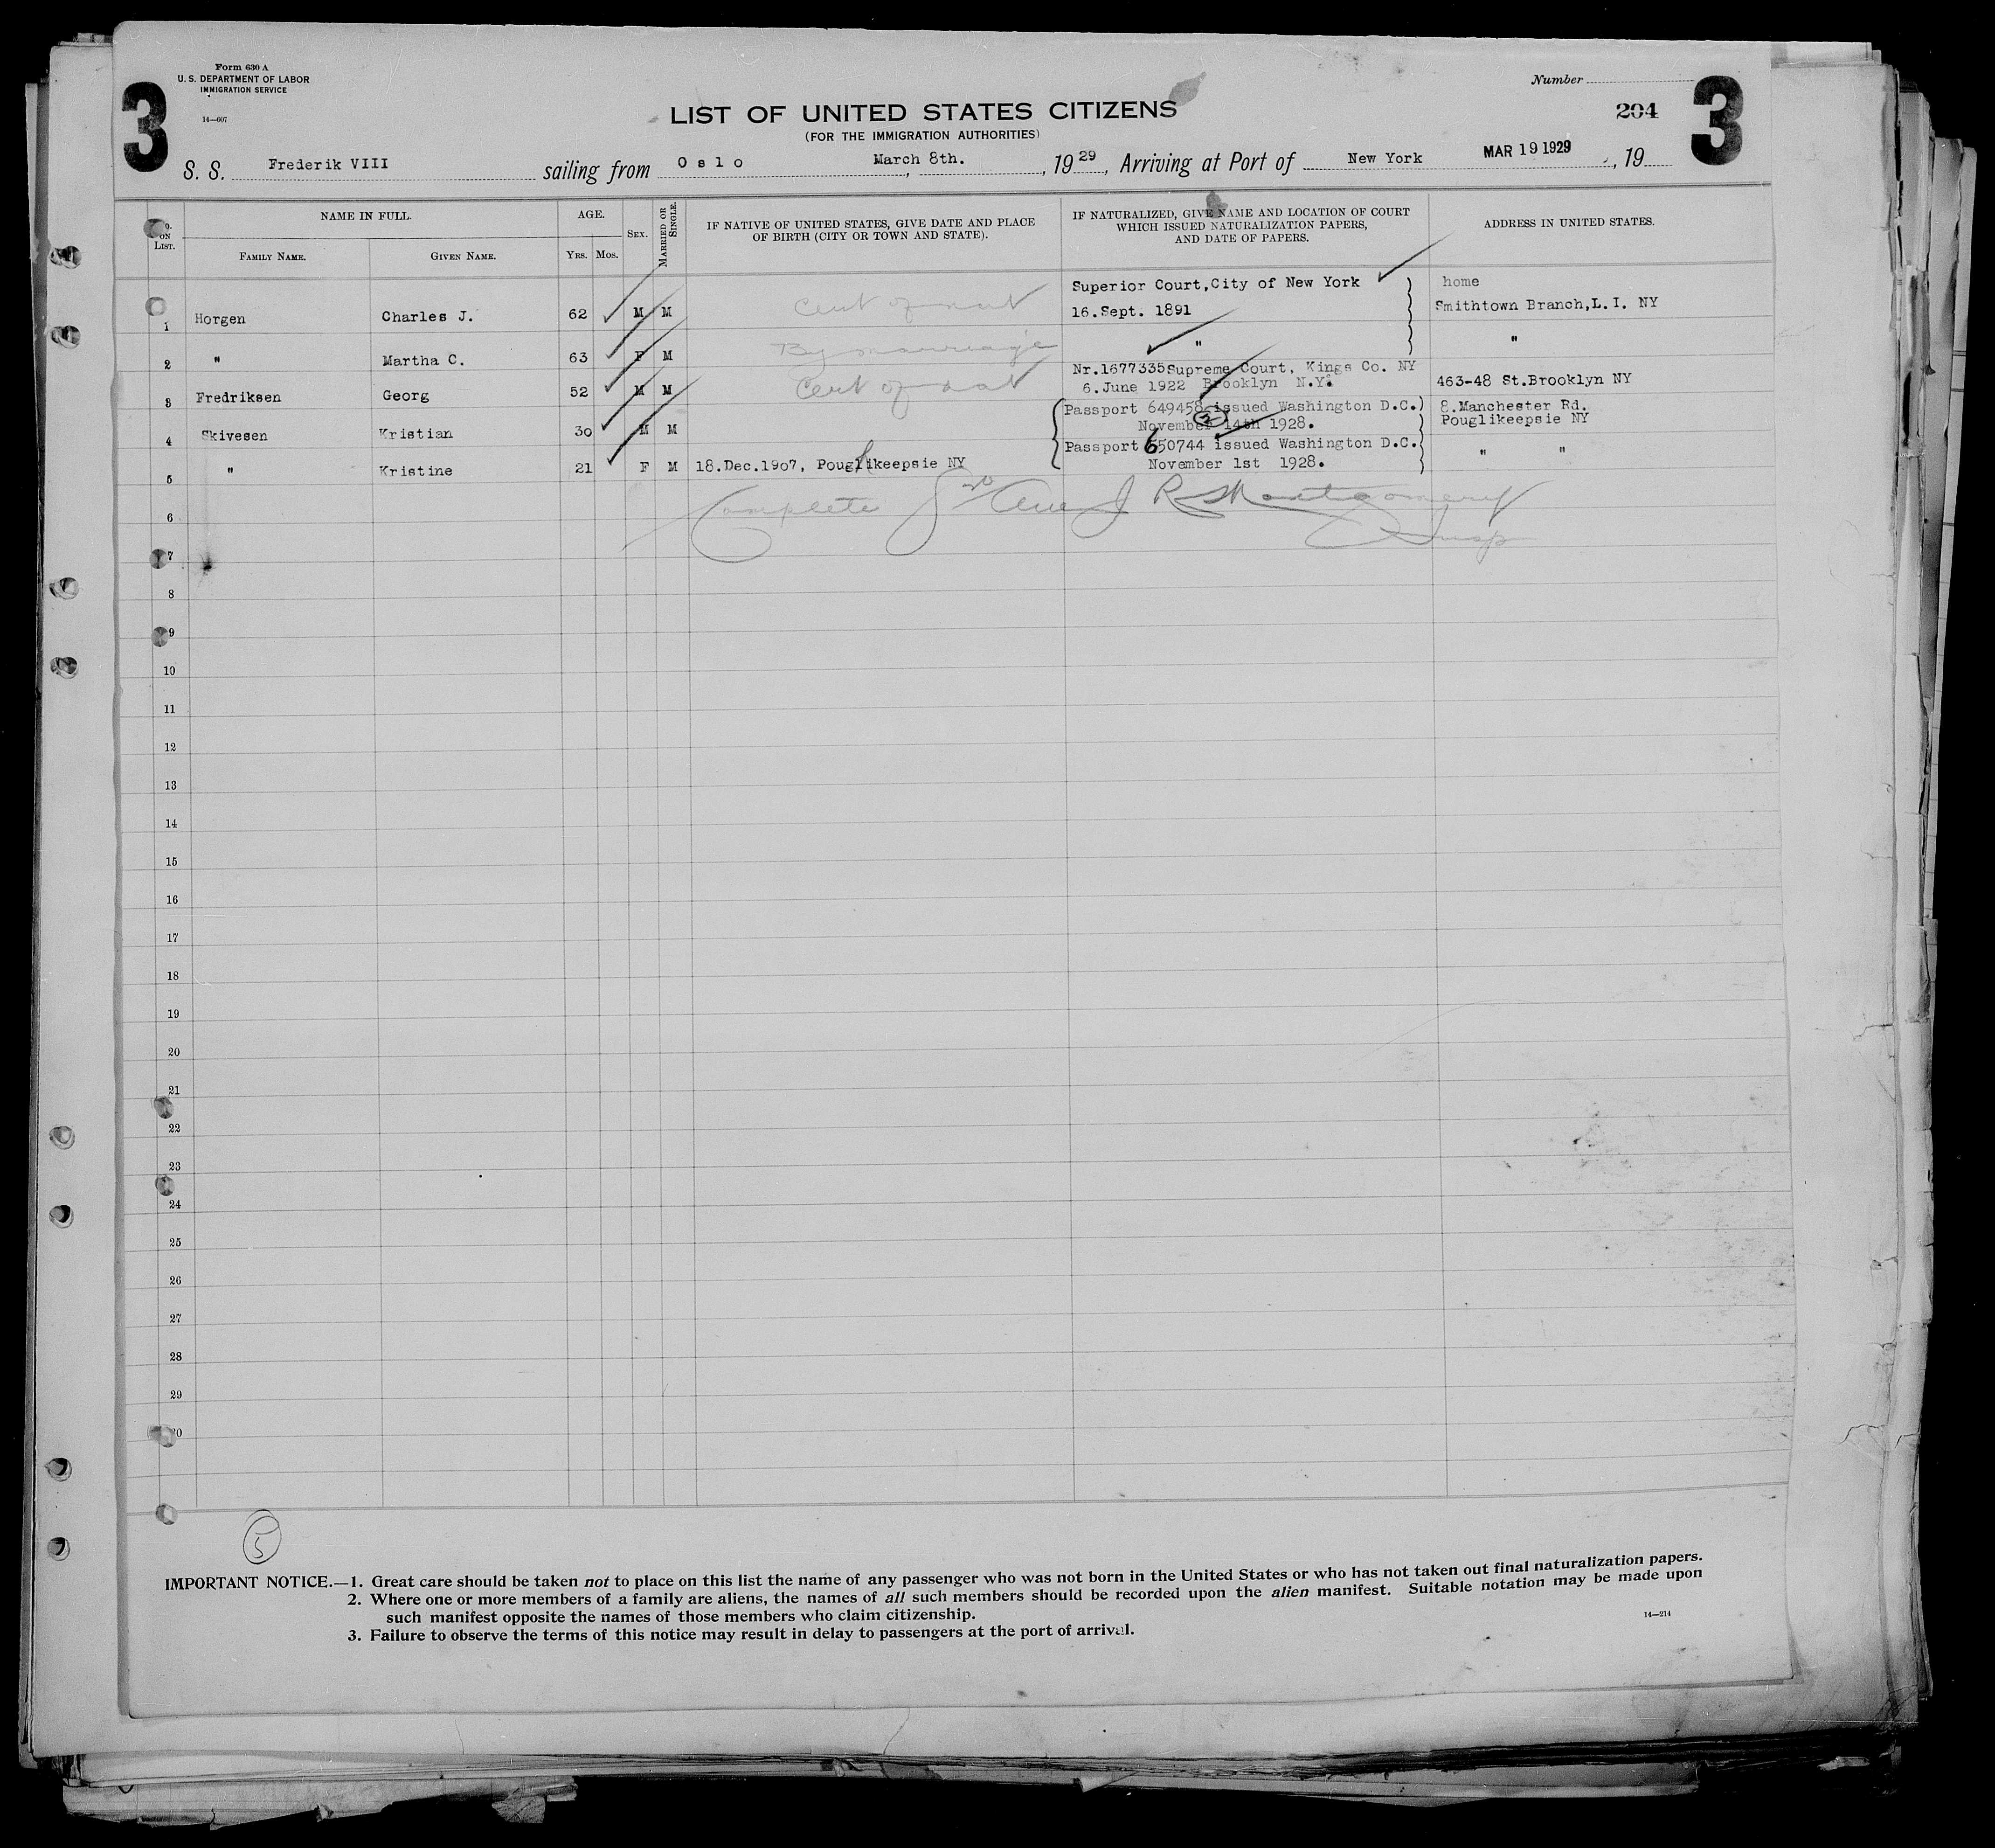 Form 630 A
U. S. DEPARTMENT OF LABOR
IMMIGRATION SERVICE
14—607
3
Number
204
3
LIST OF UNITED STATES CITIZENS
(FOR THE IMMIGRATION AUTHORITIES)
S. S. Frederik VIII sailing from Oslo, March 8th., 1929, Arriving at Port of New York MAR 19 1929, 19
ON LIST.
NAME IN FULL.
FAMILY NAME.
GIVEN NAME.
AGE.
YRS. MOS.
SEX.
MARRIED OR SINGLE.
IF NATIVE OF UNITED STATES, GIVE DATE AND PLACE OF BIRTH (CITY OR TOWN AND STATE).
IF NATURALIZED, GIVE NAME AND LOCATION OF COURT WHICH ISSUED NATURALIZATION PAPERS, AND DATE OF PAPERS.
ADDRESS IN UNITED STATES.
Superior Court,City of New York home
1 Horgen Charles J. 62 M M Cert of nat 16.Sept. 1891 Smithtown Branch,L.I. NY
2 " Martha C. 63 F M By marriage " "
Nr.1677335Supreme Court, Kings Co. NY
3 Fredriksen Georg 52 M M Cert of nat 6.June 1922 Brooklyn N.Y. 463-48 St.Brooklyn NY
Passport 649458 issued Washington D.C.) 8.Manchester Rd.
4 Skivesen Kristian 30 M M November 14th 1928. Pouglikeepsie NY
Passport 650744 issued Washington D.C. " "
5 " Kristine 21 F M 18.Dec.1907, Poughkeepsie NY November 1st 1928.
Complete J R Montgomery
6
Insp
7
8
9
10
11
12
13
14
15
16
17
18
19
20
21
22
23
24
25
26
27
28
29
30
5
IMPORTANT NOTICE.—1. Great care should be taken not to place on this list the name of any passenger who was not born in the United States or who has not taken out final naturalization papers.
2. Where one or more members of a family are aliens, the names of all such members should be recorded upon the alien manifest. Suitable notation may be made upon
such manifest opposite the names of those members who claim citizenship.
14—214
3. Failure to observe the terms of this notice may result in delay to passengers at the port of arrival.